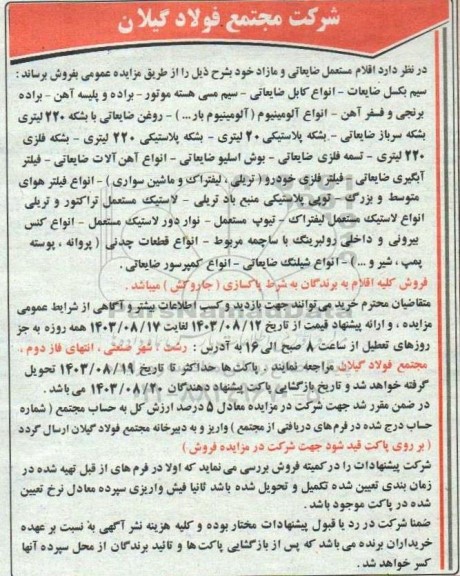 شرکت مجتمع فولاد گیلان
در نظر دارد اقلام مستعمل ضایعاتی و مازاد خود بشرح ذیل را از طریق مزایده عمومی بفروش برساند :
سیم بکسل ضایعات - انواع کابل ضایعاتی - سیم مسی هسته موتور - براده و پلیسه آهن - براده
برنجی و قسفر آهن - انواع آلومینیوم (آلومینیوم بار...) - روغن ضایعاتی با بشکه ۲۲۰ لیتری
بشکه سرباز ضایعاتی - بشکه پلاستیکی ۲۰ لیتری - بشکه پلاستیکی ۲۲۰ لیتری - بشکه فلزی
۲۲۰ لیتری - تسمه فلزی ضایعاتی - بوش اسلیو ضایعاتی - انواع آهن آلات ضایعاتی - فیلتر
آبگیری ضایعاتی - فیلتر فلزی خودرو (تریلی ، لیفتراک و ماشین سواری ) - انواع فیلتر هوای
متوسط و بزرگ - توپی پلاستیکی منبع باد تریلی - لاستیک مستعمل تراکتور و تریلی
انواع لاستیک مستعمل لیفتراک - تیوپ مستعمل - نوار دور لاستیک مستعمل - انواع کنس
بیرونی و داخلی رولبرینگ با ساچمه مربوط - انواع قطعات چدنی ( پروانه ، پوسته
پمپ ، شیر و ...) - انواع شیلنگ ضایعاتی - انواع کمپرسور ضایعاتی .
فروش کلیه اقلام به برندگان به شرط پاکسازی ( جاروکش ) میباشد .
متقاضیان محترم خرید می توانند جهت بازدید و کسب اطلاعات بیشتر و آگاهی از شرایط عمومی
مزایده ، و ارائه پیشنهاد قیمت از تاریخ ۱۴۰۳/۰۸/۱۲ لغایت ۱۴۰۳/۰۸/۱۷ همه روزه به جز
روزهای تعطیل از ساعت ۸ صبح الی ۱۶ به آدرس : رشت ، شهر صنعتی ، انتهای فاز دوم ،
مجتمع فولاد گیلان مراجعه نمایند . پاکت ها حداکثر تا تاریخ ۱۴۰۳/۰۸/۱۹ تحویل
گرفته خواهد شد و تاریخ بازگشایی پاکت پیشنهاد دهندگان ۱۴۰۳/۰۸/۲۰ می باشد .
در ضمن مقرر شد جهت شرکت در مزایده معادل ۵ درصد ارزش کل به حساب مجتمع ( شماره
حساب درج شده در فرم های دریافتی از مجتمع ) واریز و به دبیرخانه مجتمع فولاد گیلان ارسال گردد
( بر روی پاکت قید شود جهت شرکت در مزایده فروش )
شرکت پیشنهادات را در کمیته فروش بررسی می نماید که اولا در فرم های از قبل تهیه شده در
زمان بندی تعیین شده تکمیل و تحویل شده باشد ثانیا فیش واریزی سپرده معادل نرخ تعیین
شده در پاکت موجود باشد .
ضمنا شرکت در رد یا قبول پیشنهادات مختار بوده و کلیه هزینه نشر آگهی به نسبت بر عهده
خریداران برنده می باشد که پس از بازگشایی پاکت ها و تائید برندگان از محل سپرده آنها
کسر خواهد شد .